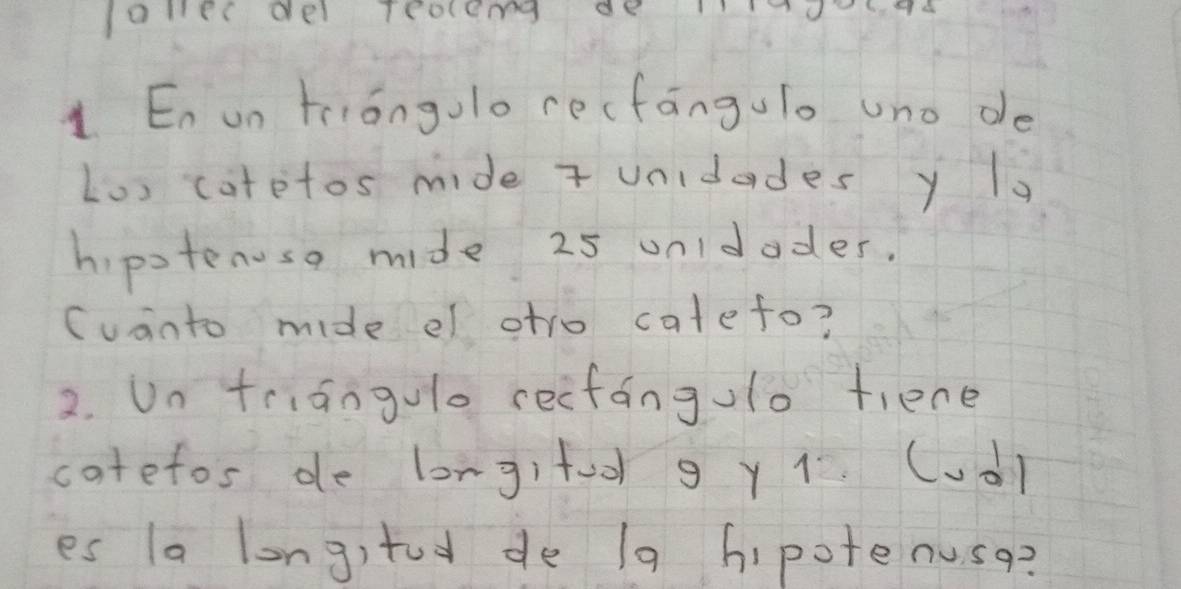 Taller del teorema de Pitágoras
1. En un triángulo rectángulo uno de
Los catetos mide 7 unidades y la
hipotenusa mide 25 unidades.
Cuánto mide el otro cateto?
2. Un triángulo rectángulo tiene
catetos de longitud 9 y Cuál
es la longitud de la hipotenusa?